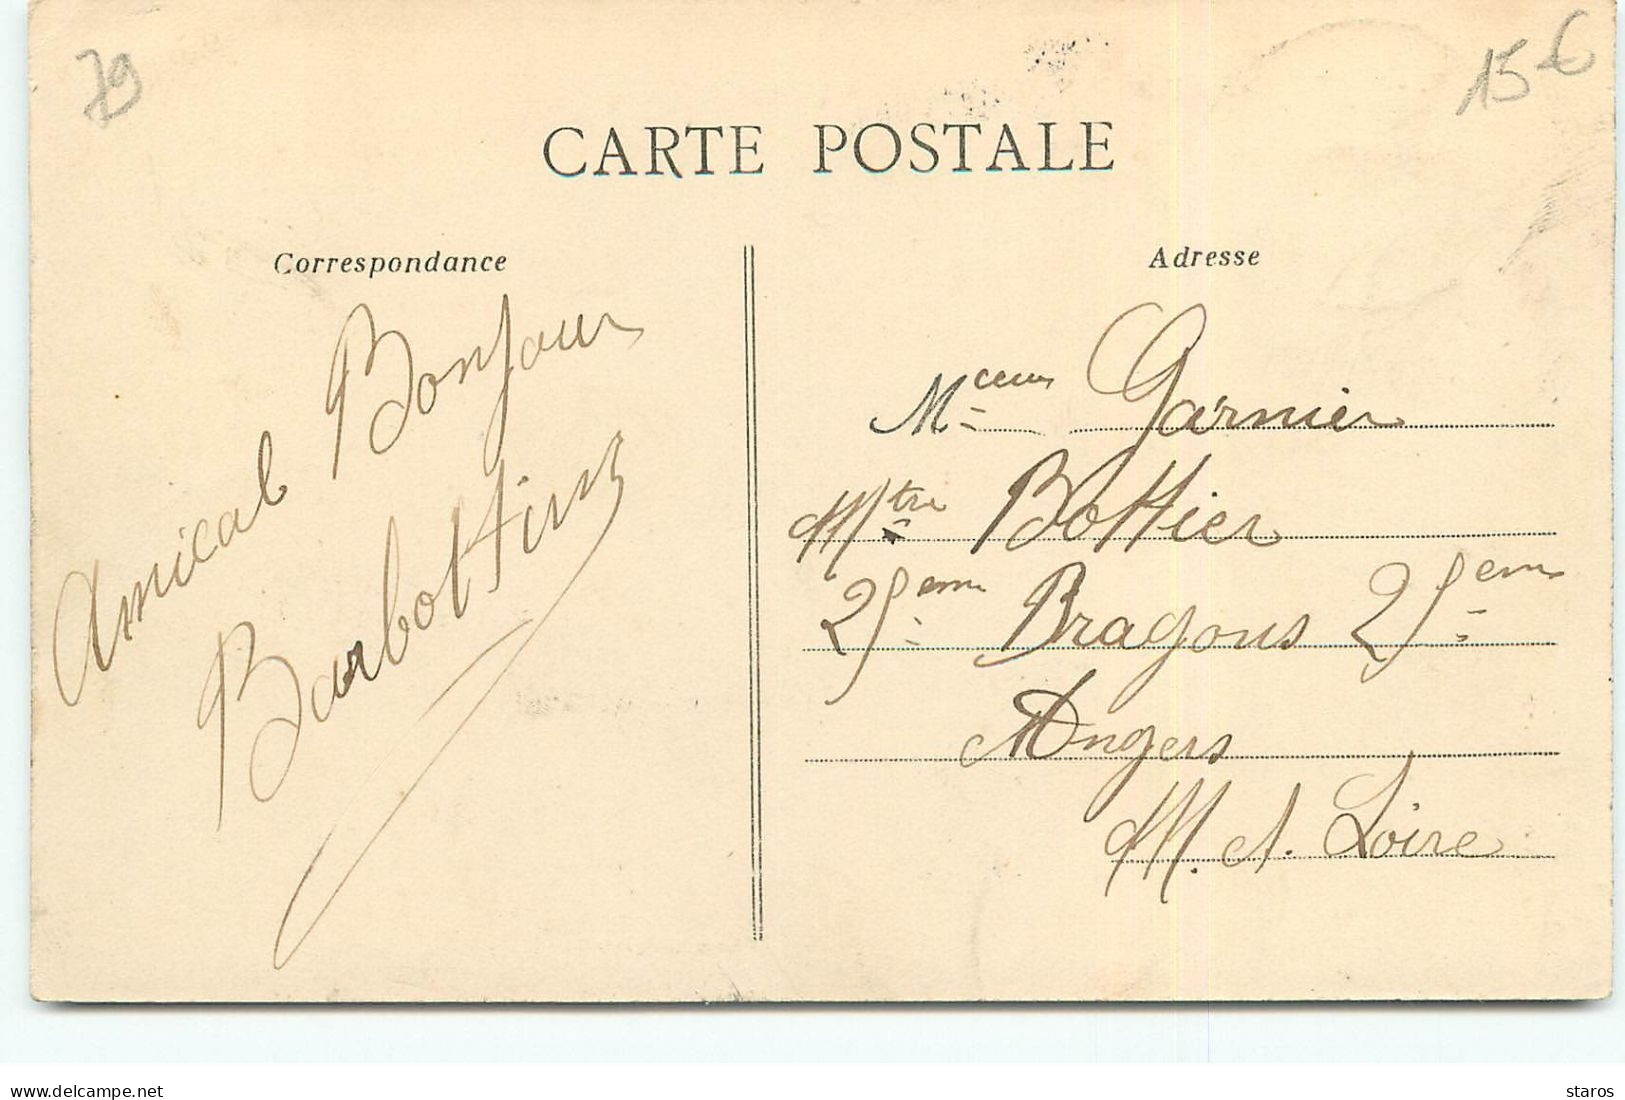 79
15 €
CARTE POSTALE
Correspondance
Adresse
Amical Bonjour
Barbottin
Garnier
Mtre Bottier
25eme Dragons 25eme
Angers
M. & Loire
www.delcampe.net
staros